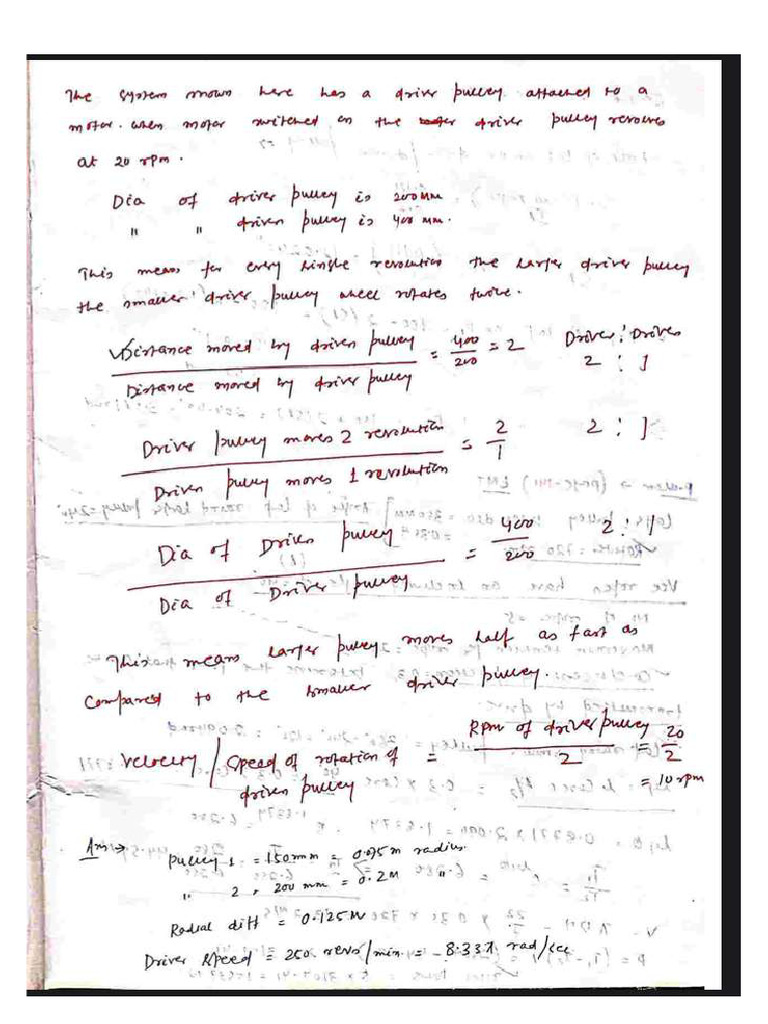 The system shown here has a driver pulley attached to a
motor. when motor switched on the driver pulley revolves
at 20 rpm.
Dia of driver pulley is 200mm
" " driven pulley is 400 mm.
This means for every single revolution the larger driver pulley
the smaller driver pulley wheel rotates twice.
Distance moved by driven pulley / Distance moved by driver pulley = 400/200 = 2 Driver : Driven
2 : 1
Driver pulley moves 2 revolution / Driven pulley moves 1 revolution = 2/1 2 : 1
Dia of Driven pulley / Dia of Driver pulley = 400/200 2 : 1
This means larger pulley moves half as fast as
compared to the smaller driver pulley.
Velocity / Speed of rotation of driven pulley = Rpm of driver pulley / 2 = 20/2
= 10 rpm
Ans→ pulley 1 = 150mm = 0.075m radius.
" 2 , 200 mm = 0.2M "
Radial diff = 0.125M
Driver speed = 250 revs/min. = 8.33π rad/sec